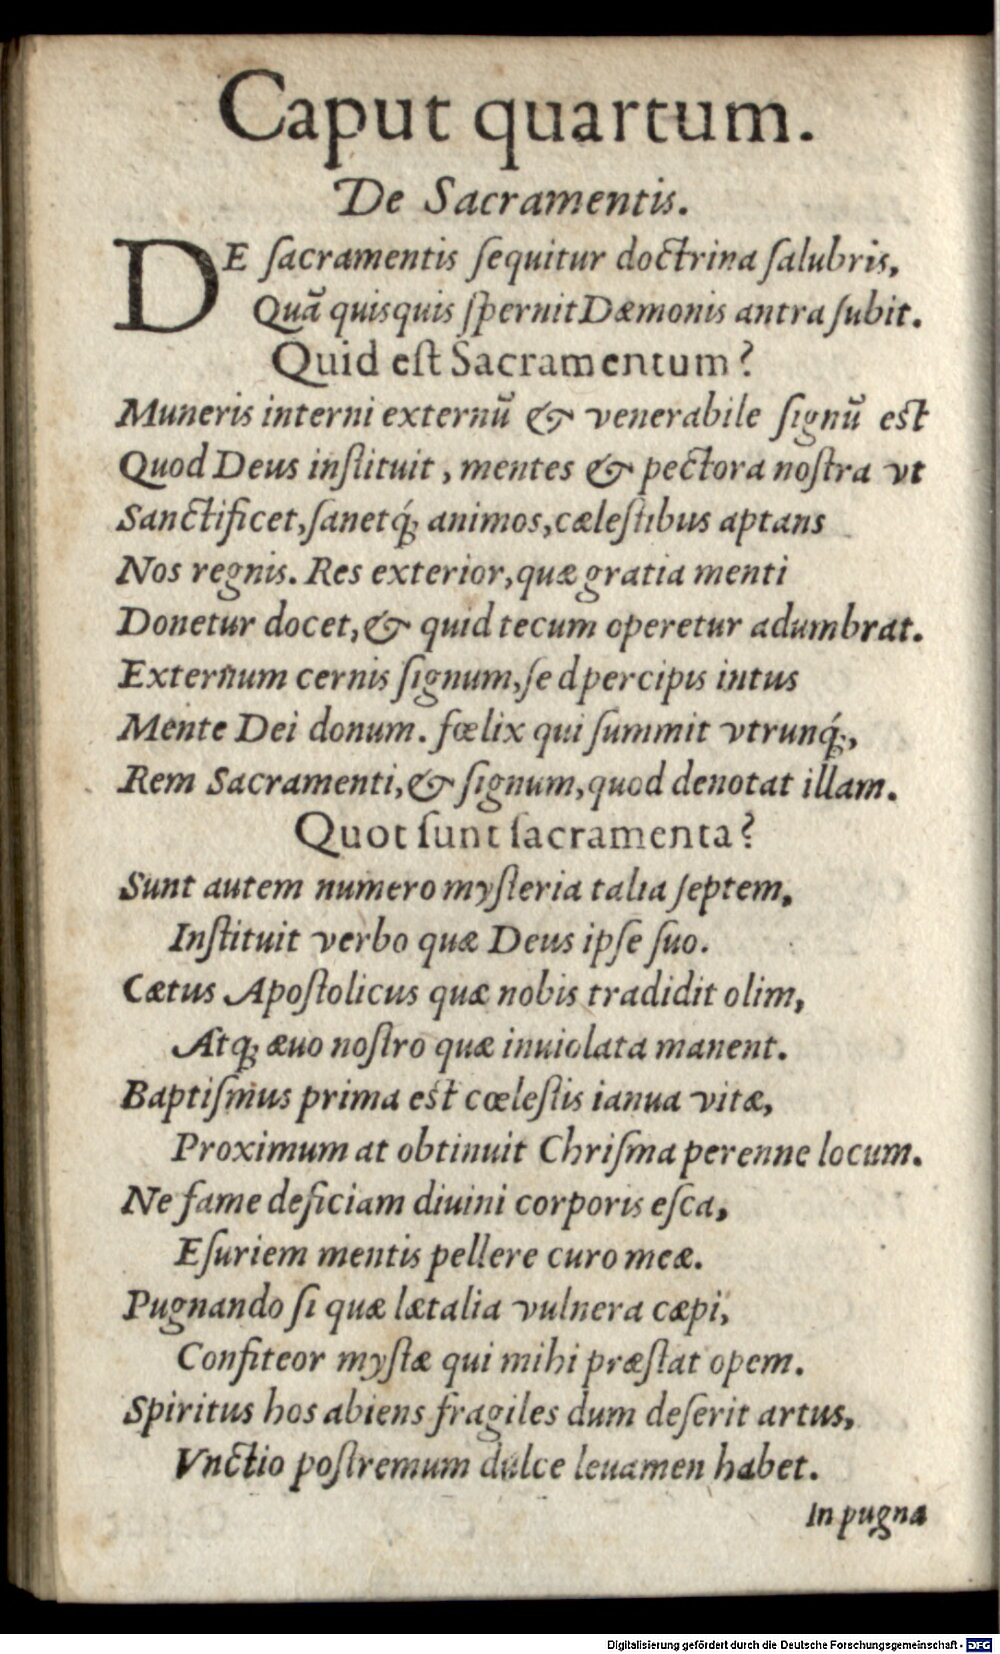 Caput quartum.
De Sacramentis.
DE ſacramentis ſequitur doctrina ſalubris,
Quā quisquis ſpernit Dæmonis antra ſubit.
Quid eſt Sacramentum?
Muneris interni externū & venerabile ſignū eſt
Quod Deus inſtituit, mentes & pectora noſtra vt
Sanctificet, ſanetq́; animos, cæleſtibus aptans
Nos regnis. Res exterior, quæ gratia menti
Donetur docet, & quid tecum operetur adumbrat.
Externum cernis ſignum, ſe dpercipis intus
Mente Dei donum. fœlix qui ſummit vtrunq́;,
Rem Sacramenti, & ſignum, quod denotat illam.
Quot ſunt ſacramenta?
Sunt autem numero myſteria talia ſeptem,
Inſtituit verbo quæ Deus ipſe ſuo.
Cætus Apoſtolicus quæ nobis tradidit olim,
Atq; æuo noſtro quæ inuiolata manent.
Baptiſmus prima eſt cœleſtis ianua vitæ,
Proximum at obtinuit Chriſma perenne locum.
Ne fame deficiam diuini corporis eſca,
Eſuriem mentis pellere curo meæ.
Pugnando ſi quæ lætalia vulnera cæpi,
Confiteor myſtæ qui mihi præſtat opem.
Spiritus hos abiens fragiles dum deſerit artus,
Vnctio poſtremum dulce leuamen habet.
In pugna
Digitalisierung gefördert durch die Deutsche Forschungsgemeinschaft - DFG